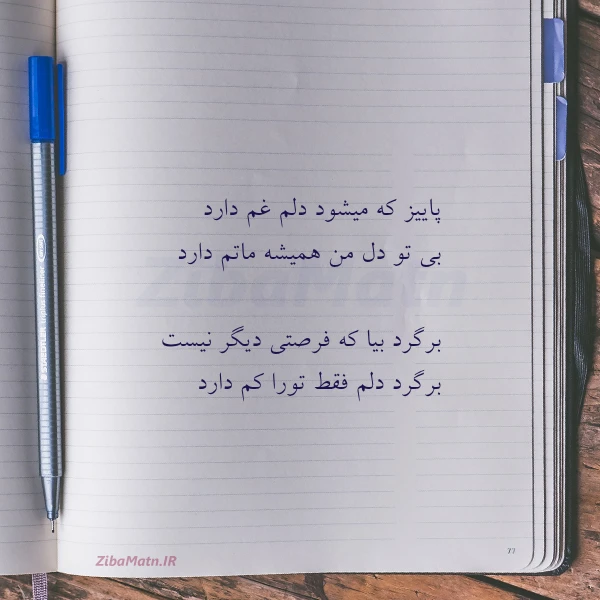 پاییز که میشود دلم غم دارد
بی تو دل من همیشه ماتم دارد
برگرد بیا که فرصتی دیگر نیست
برگرد دلم فقط تورا کم دارد
ZibaMatn.IR